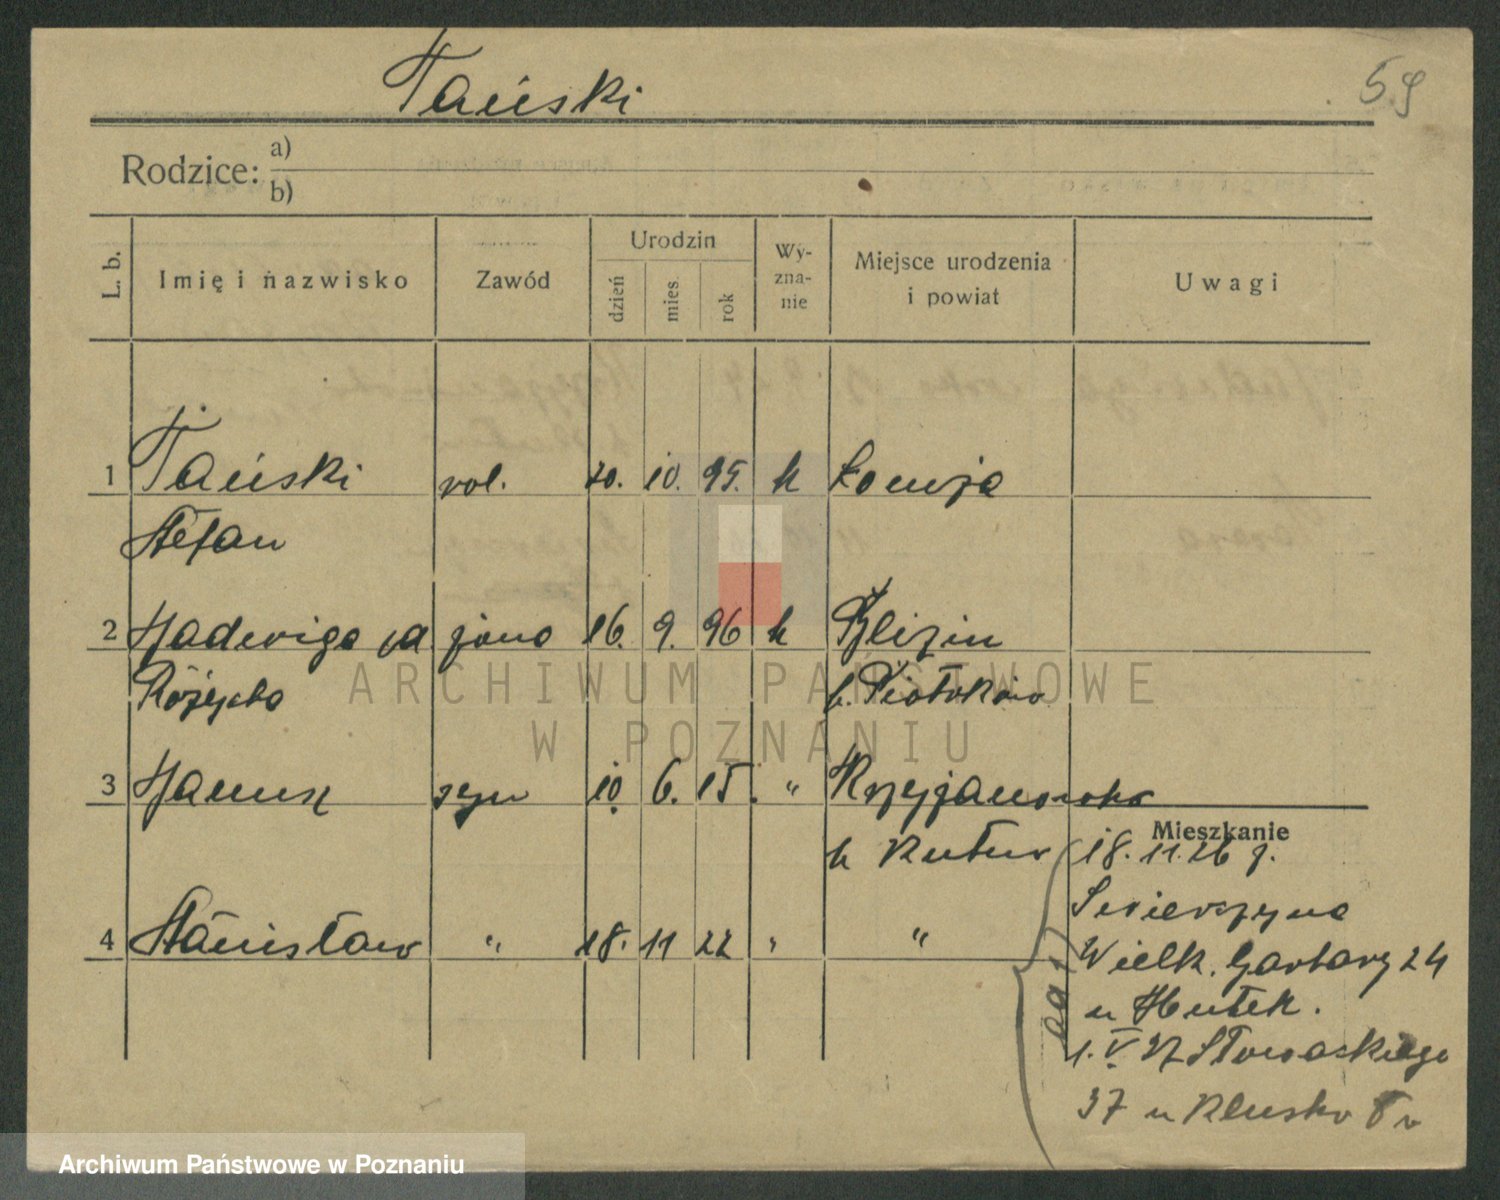 Tański
59
Rodzice: a)
b)
L. b.
Imię i nazwisko
Zawód
Urodzin
dzień
mies.
rok
Wy-
zna-
nie
Miejsce urodzenia
i powiat
Uwagi
1 Tański rol. 20. 10. 95. k Łomża
Stefan
2 Jadwiga żona 16. 9. 96 k
Różycka
3 Janusz syn 10. 6. 15. " Krzyżanówka
Mieszkanie
k Kutno 18. 11. 26 z.
4 Stanisław " 18. 11 22 " "
Wielk. Garbary 24
u
1. V Słowackiego
37 u
ARCHIWUM PAŃSTWOWE
W POZNANIU
Archiwum Państwowe w Poznaniu